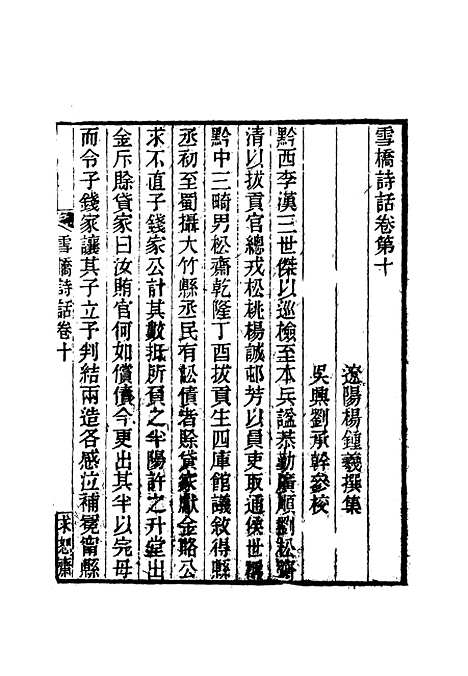 雪橋詩話卷第十
遼陽楊鍾羲撰集
吳興劉承幹參校
黔西李漢三世傑以巡檢至本兵諡恭勤廣順劉松齋
清以拔貢官總戎松桃楊誠邨芳以員吏取通侯世稱
黔中三畸男松齋乾隆丁酉拔貢生四庫館議敘得縣
丞初至蜀攝大竹縣丞民有訟債者賒貸家獻金賂公
求不直子錢家公計其數抵所負之半陽許之升堂出
金斥賒貸家曰汝賄官何如償債今更出其半以完毋
而令子錢家讓其子立予判結兩造各感泣補冕甯縣
雪橋詩話卷十
求恕齋